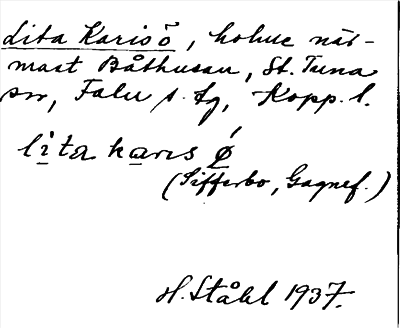 Lita Karisö, holme när-
mast Båthusan, St. Tuna
sn, Falu s. tg, Kopp. l.
lita karıs ǿ
(Sifferbo, Gagnef.)
H. Ståhl 1937.